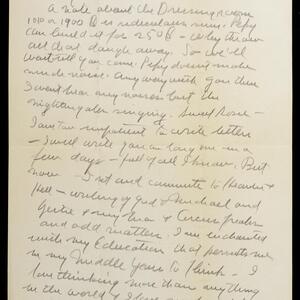 A note about the Dressing room
1010 or 1900 B is ridiculous sum. Pepy
can build it for 250 B - Why throw
all that dough away. So we'll
wait till you come. Pepy doesn't make
much noise. Any way with you there
I won't hear any noises but the
nightingales singing. Sweet Rosie -
I am too impatient to write letters
- I will write you a long one in a
few days - full of all I know. But
now - I sit and commute to Heaven &
Hell - writing of god & Michael and
Gertie & my Lion & Circus freaks
and odd matters. I am enchanted
with my Education that permits me
in my middle years to think - I
love thinking more than anything
in the world &